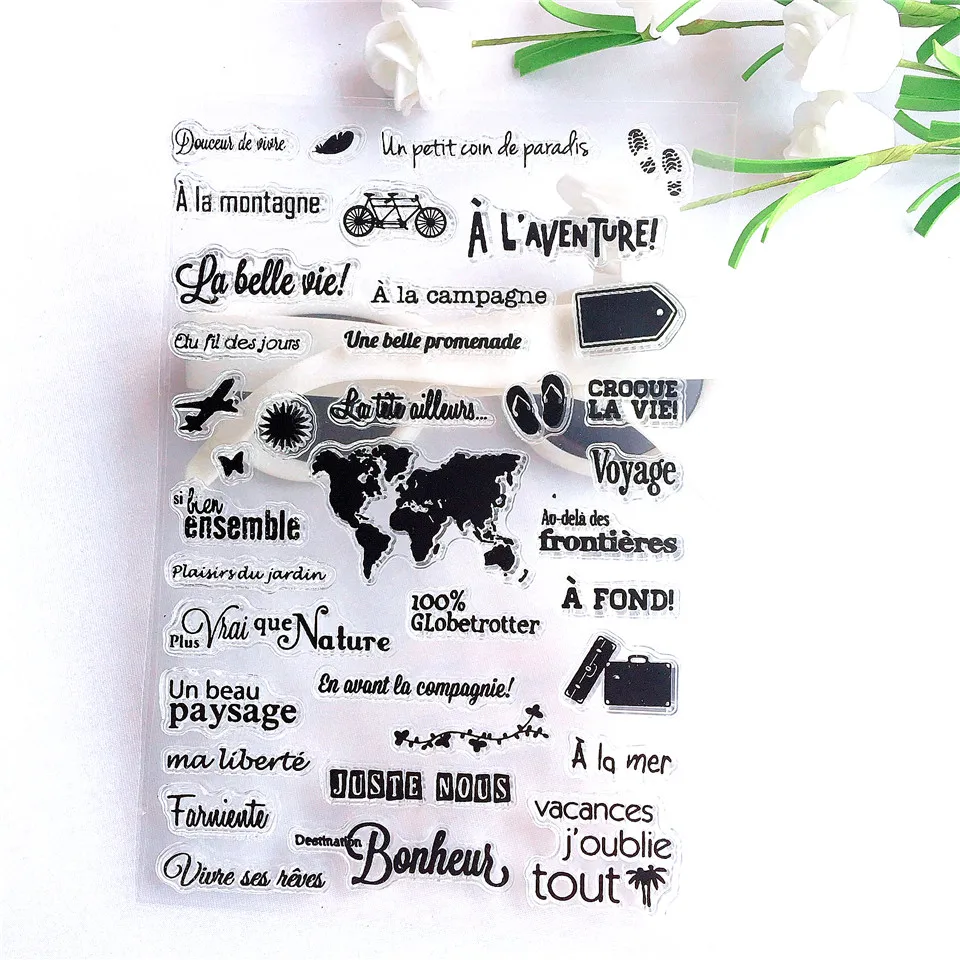 Douceur de vivre
Un petit coin de paradis
À la montagne
À L'AVENTURE!
La belle vie!
À la campagne
Au fil des jours
Une belle promenade
La tête ailleurs...
CROQUE
LA VIE!
Voyage
si bien
ensemble
Au-delà des
frontières
Plaisirs du jardin
100%
GLobetrotter
À FOND!
Plus Vrai que Nature
En avant la compagnie!
Un beau
paysage
À la mer
ma liberté
JUSTE NOUS
Farniente
vacances
j'oublie
tout
Destination
Bonheur
Vivre ses rêves